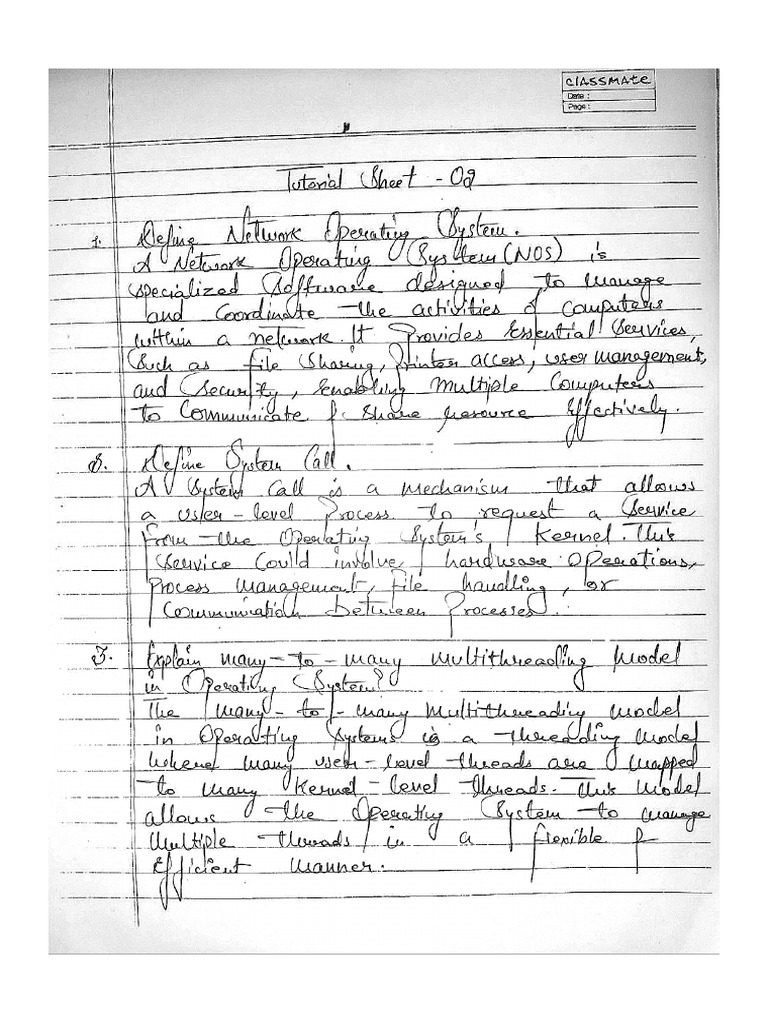 CLASSMATE
Date :
Page :
Tutorial Sheet - 02
1. Define Network Operating System.
A Network Operating System (NOS) is
specialized Software designed to manage
and Coordinate the activities of Computers
within a network. It Provides Essential Services,
Such as file Sharing, Printer access, user management,
and Security, Enabling Multiple Computers
to Communicate & Share resource Effectively.
Define System Call.
A System Call is a mechanism that allows
a user-level Process to request a Service
from the Operating System's Kernel. This
Service Could involve hardware operations,
Process management, file handling, or
Communication between Processes.
3. Explain many-to-many multithreading Model
in Operating System?
The many-to-many Multithreading model
in Operating Systems is a threading model
where many user-level threads are mapped
to many Kernel-level threads. This Model
allows the Operating System to manage
Multiple threads in a flexible &
Efficient manner.